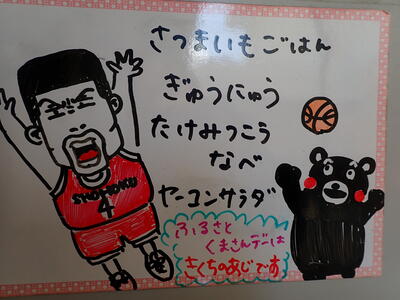 さつまいもごはん
ぎゅうにゅう
たけみつこう
なべ
ヤーコンサラダ
SHOHOKU
4
ふるさと
くまさんデーは
きくちのあじです